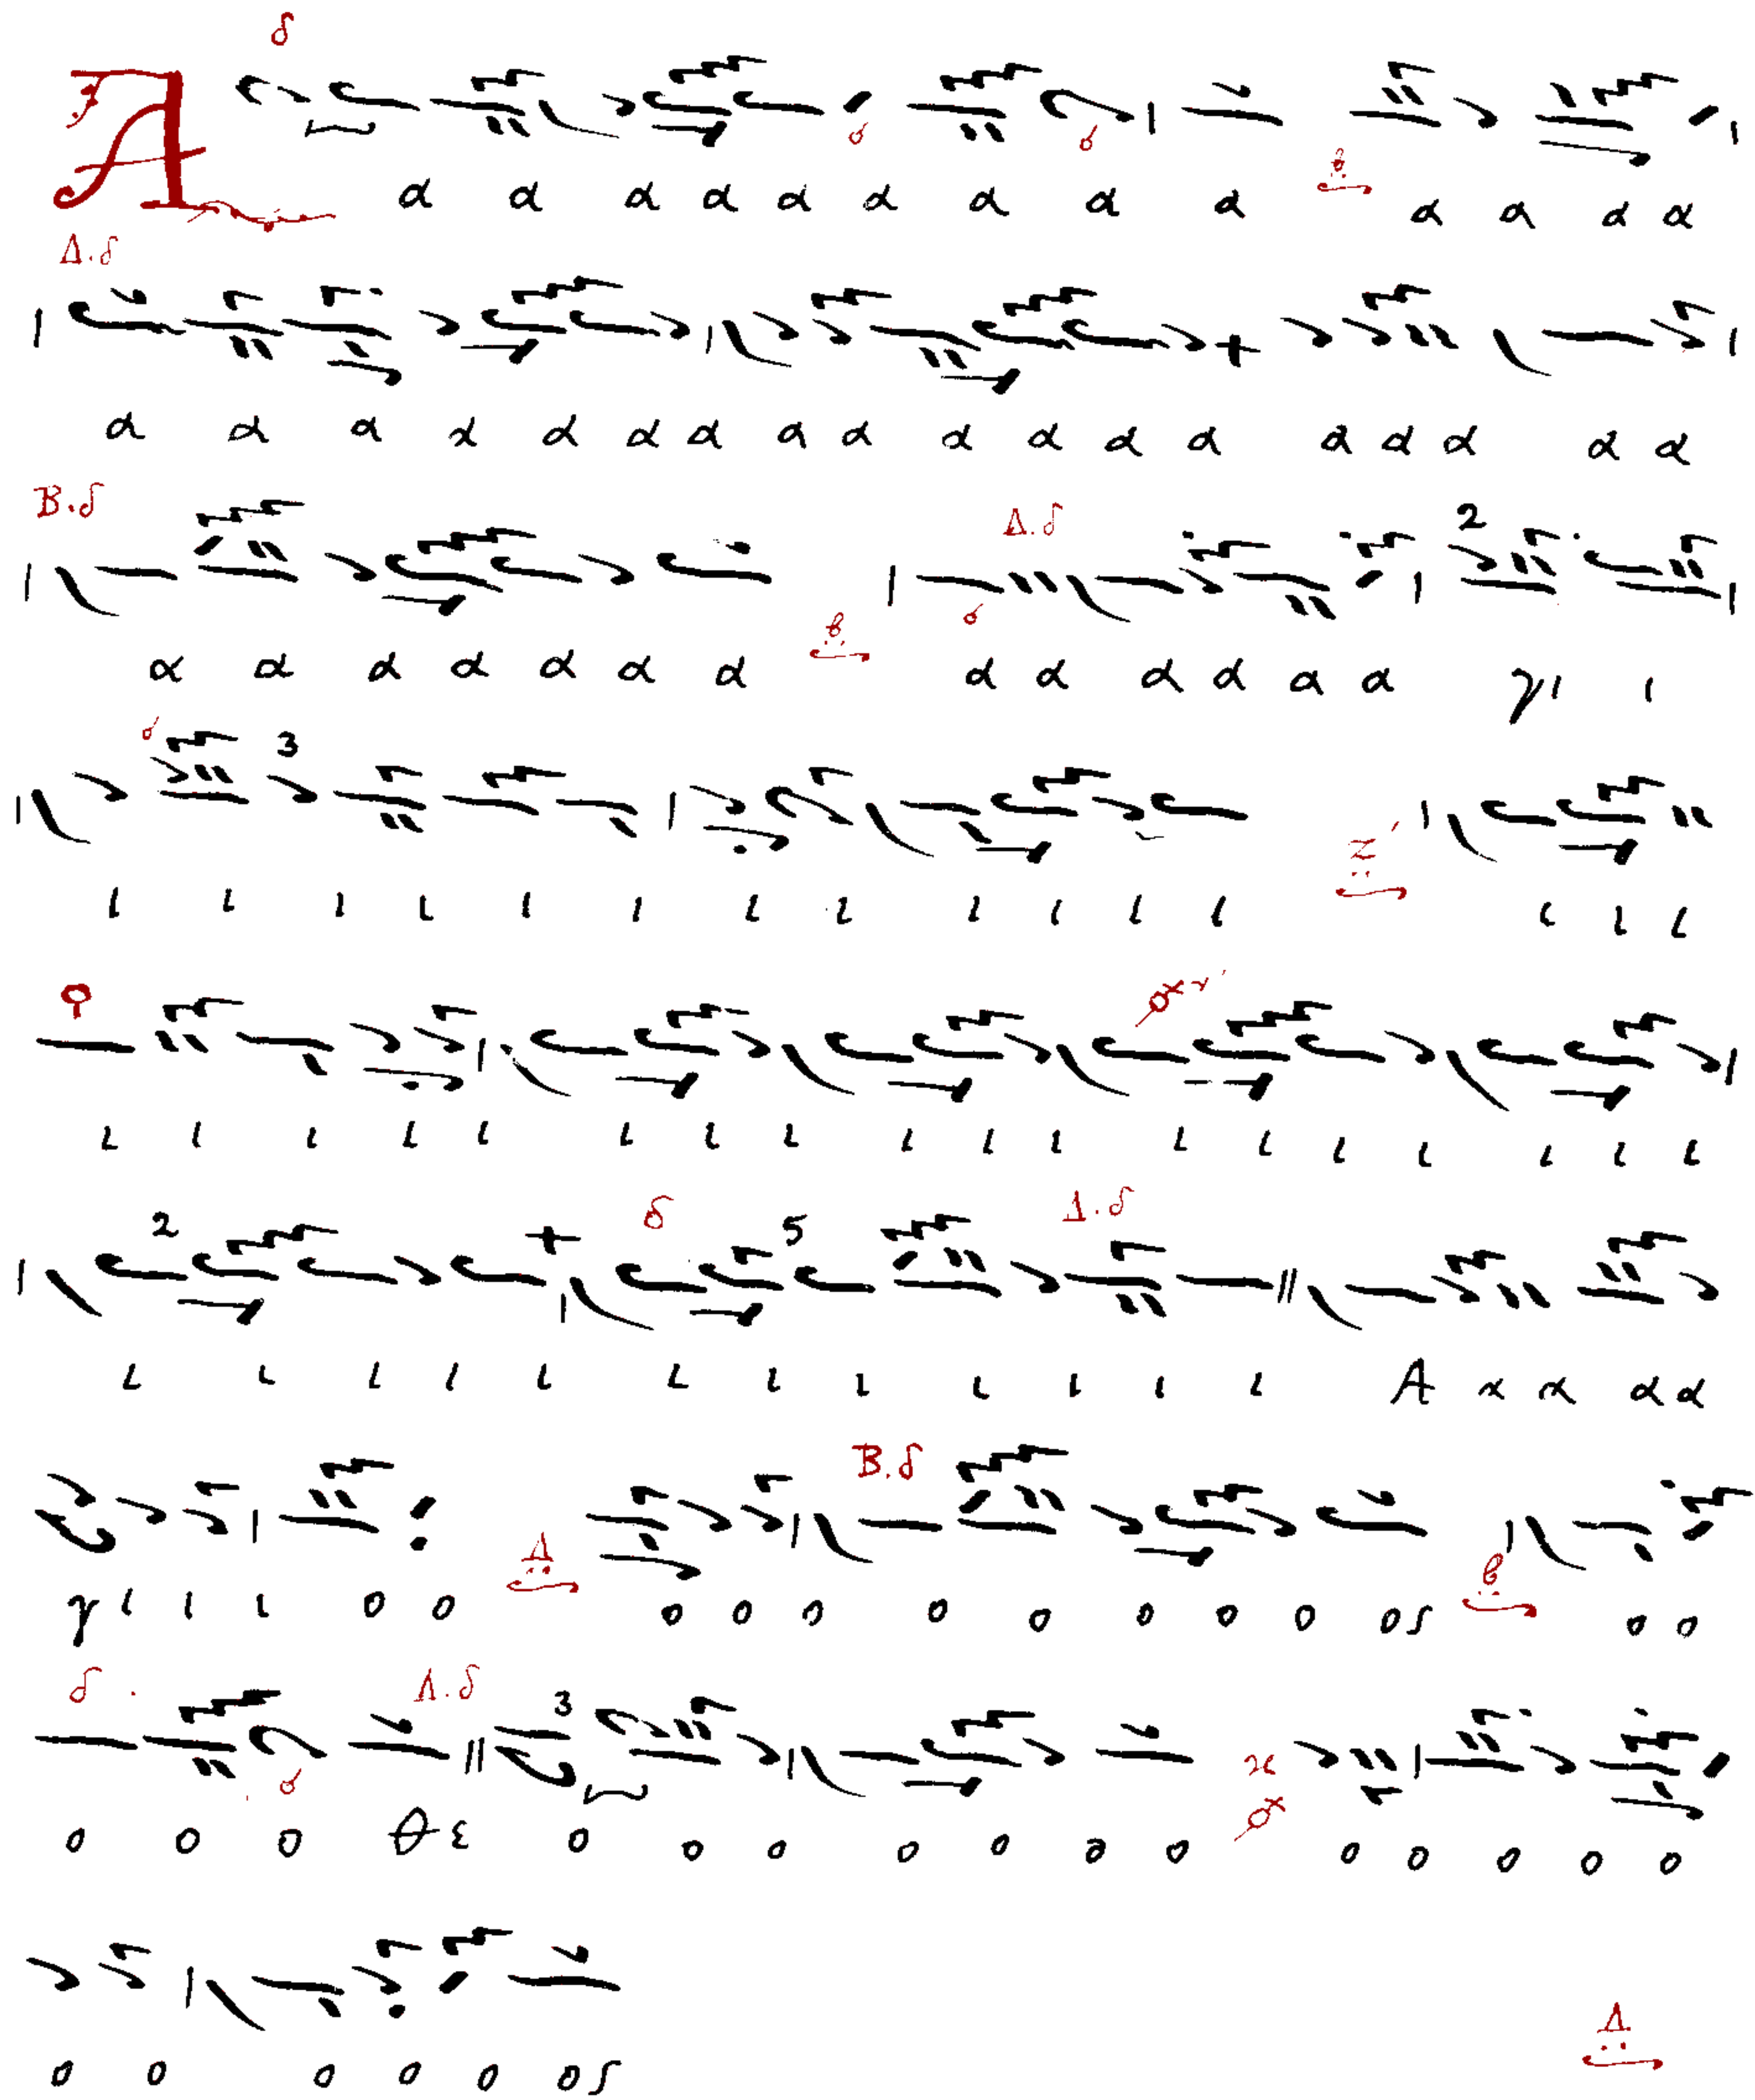 δ
Α α α α α α α α α α β α α α α
Δ.δ
α α α α α α α α α α α α α α α α α α
Β.δ Δ.δ 2
α α α α α α α β α α α α α α γι ι
3
ι ι ι ι ι ι ι ι ι ι ι ι Ζ΄ ι ι ι
ι ι ι ι ι ι ι ι ι ι ι ι ι ι ι ι ι ι
2 δ 5 Δ.δ
ι ι ι ι ι ι ι ι ι ι ι ι Α α α α α
Β.δ
γι ι ι ο ο Δ ο ο ο ο ο ο ο ο ος β ο ο
δ Δ.δ 3
ο ο ο Θε ο ο ο ο ο ο ο ο ο ο ο ο
ο ο ο ο ο ος Δ